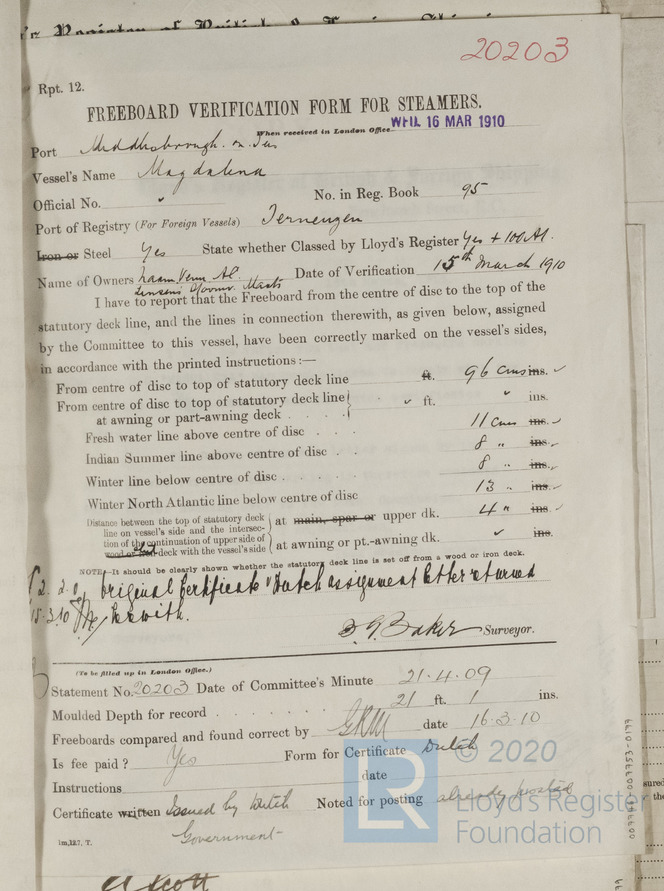 20203
Rpt. 12.
FREEBOARD VERIFICATION FORM FOR STEAMERS.
When received in London Office WED. 16 MAR 1910
Port Middlesbrough-on-Tees
Vessel's Name Magdalena
Official No. "
No. in Reg. Book 95
Port of Registry (For Foreign Vessels) Terneuzen
Iron or Steel Yes State whether Classed by Lloyd's Register Yes + 100A1.
Name of Owners Naam. Venn. Date of Verification 15th March 1910
I have to report that the Freeboard from the centre of disc to the top of the
statutory deck line, and the lines in connection therewith, as given below, assigned
by the Committee to this vessel, have been correctly marked on the vessel's sides,
in accordance with the printed instructions:—
From centre of disc to top of statutory deck line ft. 96 cms ins. ✓
From centre of disc to top of statutory deck line at awning or part-awning deck . . . . " ft. " ins.
Fresh water line above centre of disc . . . 11 cms ins. ✓
Indian Summer line above centre of disc . . 8 " ins. ✓
Winter line below centre of disc . . . . . . 8 " ins. ✓
Winter North Atlantic line below centre of disc 13 " ins. ✓
Distance between the top of statutory deck
line on vessel's side and the intersec-
tion of the continuation of upper side of
wood or iron deck with the vessel's side
at main, spar or upper dk. 4 " ins. ✓
at awning or pt.-awning dk. " ins.
NOTE.—It should be clearly shown whether the statutory deck line is set off from a wood or iron deck.
£2. 2. 0 Original Certificate & Dutch assignment letter returned
15.3.10 herewith.
Baker Surveyor.
(To be filled up in London Office.)
Statement No. 20203 Date of Committee's Minute 21.4.09
Moulded Depth for record . . . . . . . 21 ft. 1 ins.
Freeboards compared and found correct by date 16.3.10
Is fee paid? Yes Form for Certificate Dutch
Instructions date
Certificate written Issued by Dutch Government Noted for posting already posted
1m,12.7, T.
© 2020
LR
Lloyd's Register
Foundation